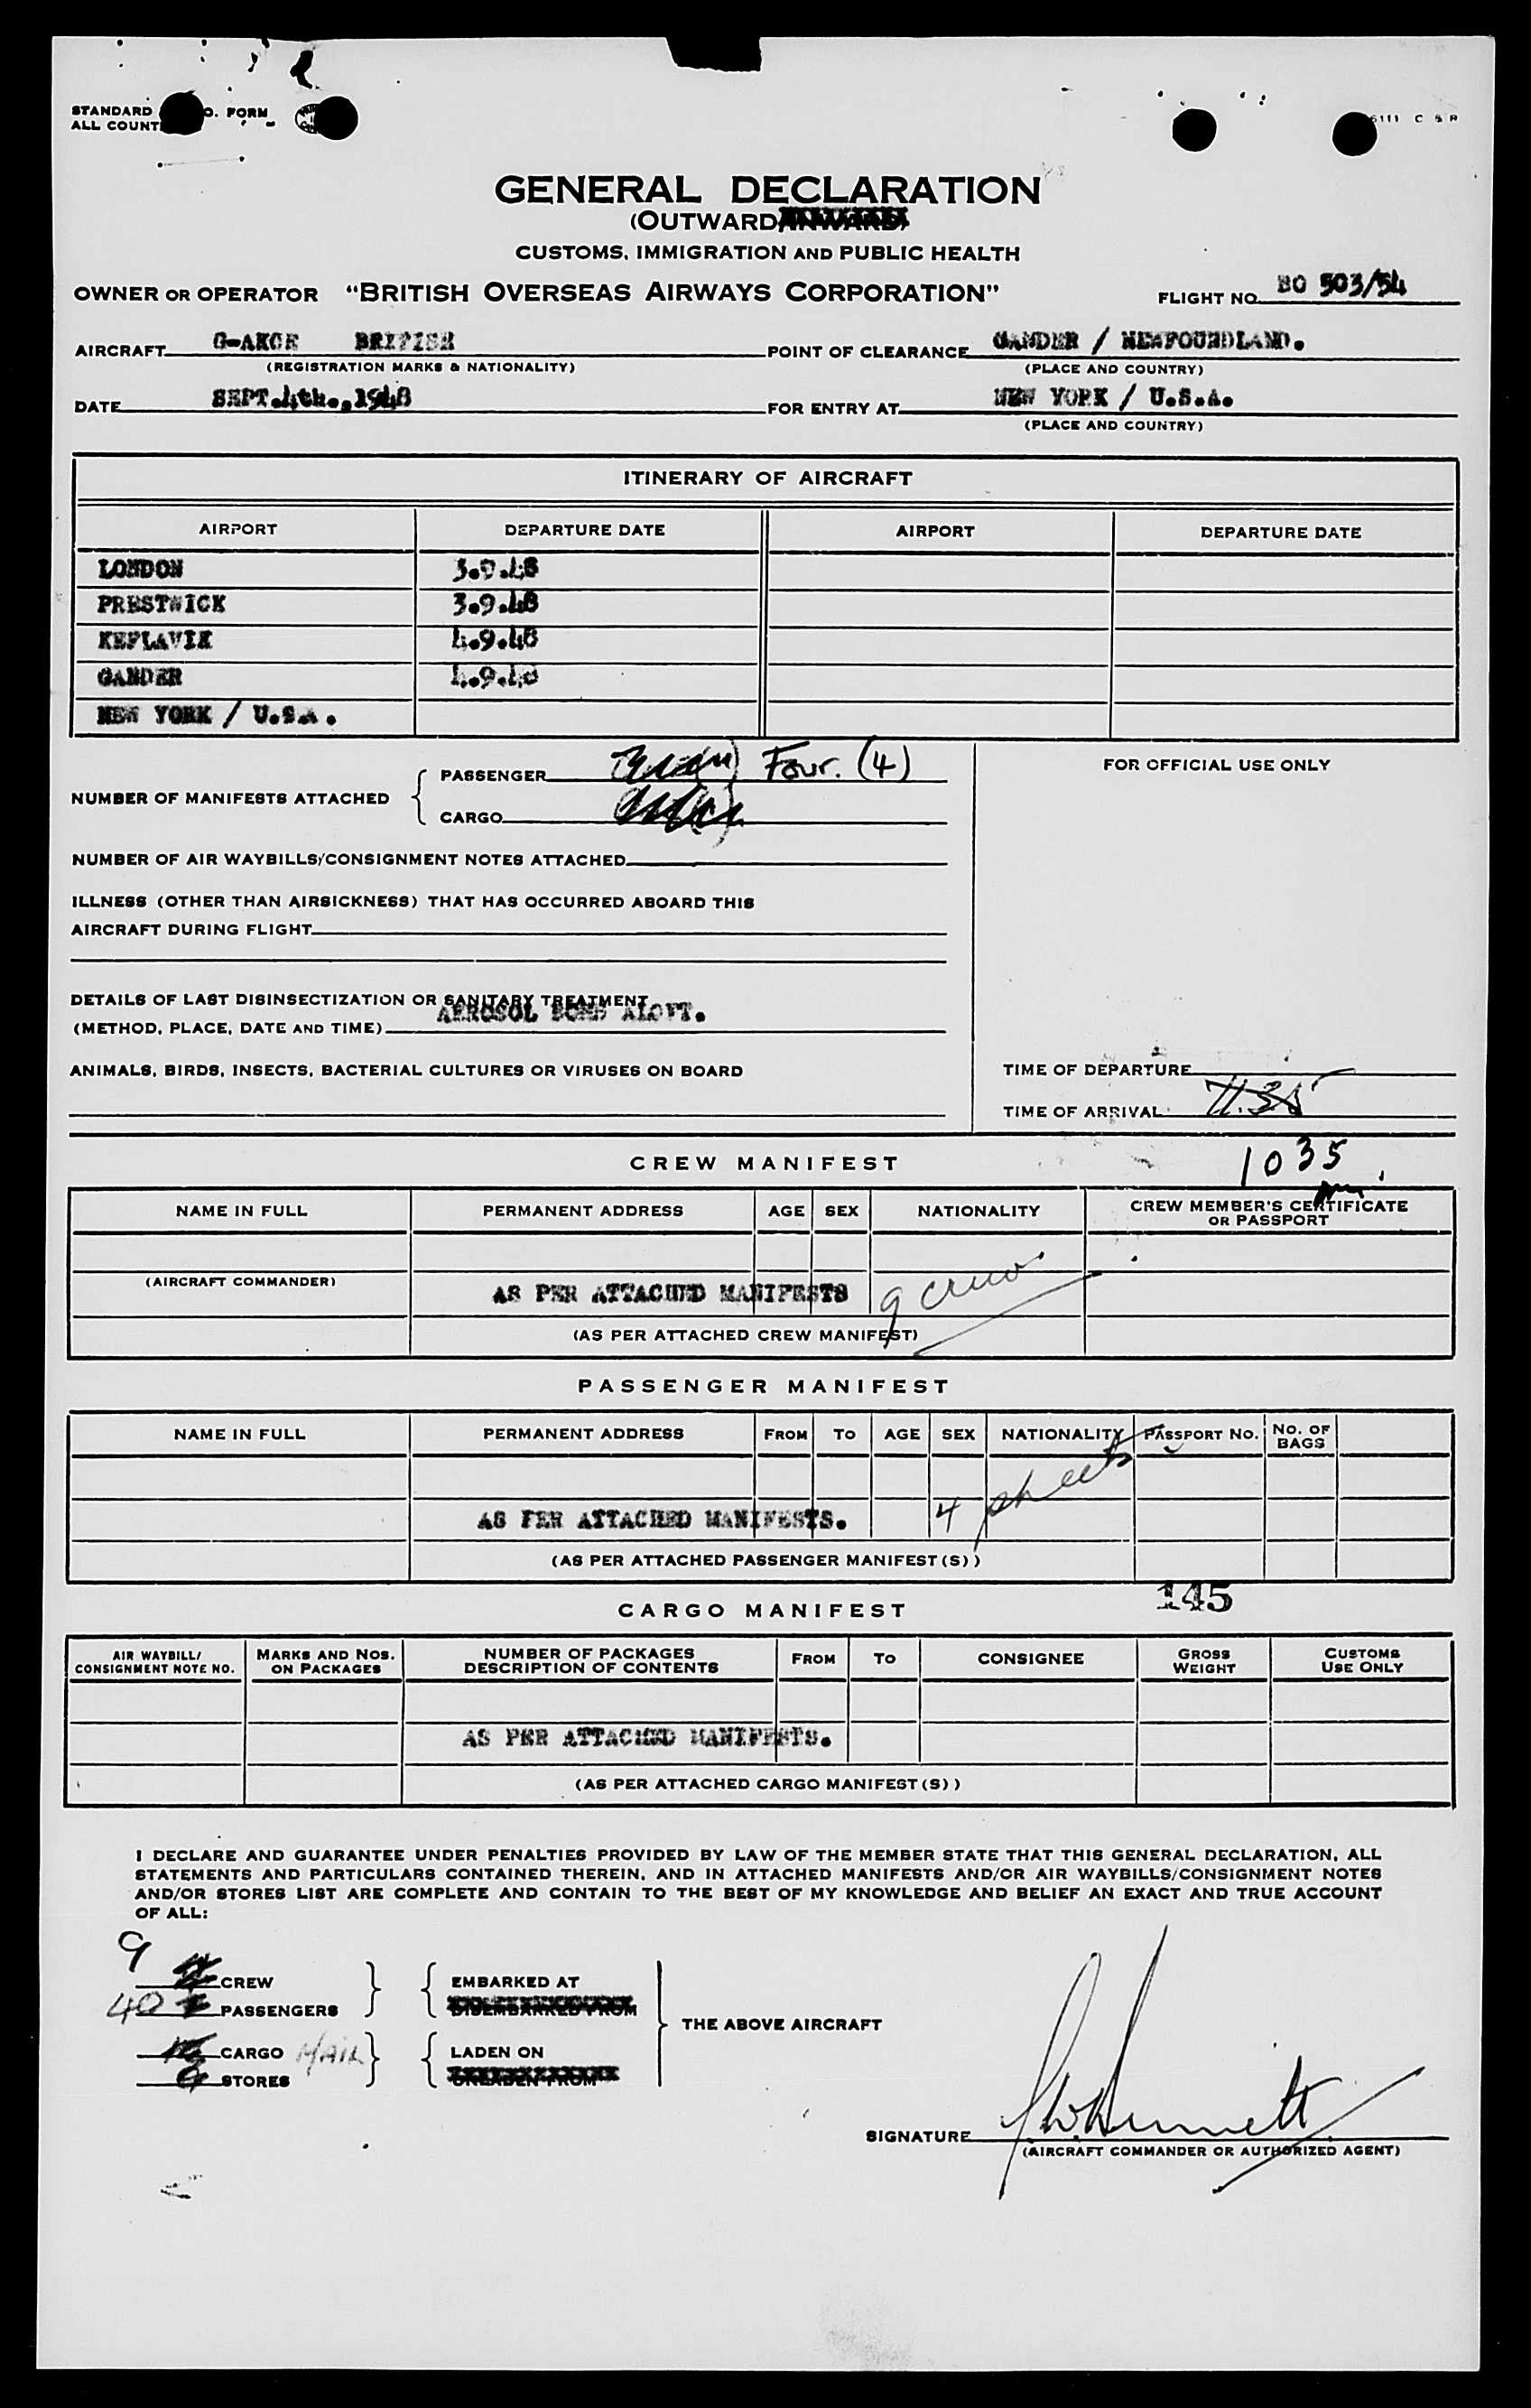 STANDARD O. FORM
ALL COUNT
6111 C S R
GENERAL DECLARATION
(OUTWARD/INWARD)
CUSTOMS, IMMIGRATION AND PUBLIC HEALTH
OWNER OR OPERATOR "BRITISH OVERSEAS AIRWAYS CORPORATION" FLIGHT NO. BO 503/54
AIRCRAFT BRITISH POINT OF CLEARANCE GANDER / NEWFOUNDLAND.
(REGISTRATION MARKS & NATIONALITY) (PLACE AND COUNTRY)
DATE SEPT.4th.,1948 FOR ENTRY AT NEW YORK / U.S.A.
(PLACE AND COUNTRY)
ITINERARY OF AIRCRAFT
AIRPORT DEPARTURE DATE AIRPORT DEPARTURE DATE
LONDON 3.9.48
PRESTWICK 3.9.48
KEFLAVIK 4.9.48
GANDER 4.9.48
NEW YORK / U.S.A.
NUMBER OF MANIFESTS ATTACHED
PASSENGER Four. (4)
CARGO
FOR OFFICIAL USE ONLY
NUMBER OF AIR WAYBILLS/CONSIGNMENT NOTES ATTACHED
ILLNESS (OTHER THAN AIRSICKNESS) THAT HAS OCCURRED ABOARD THIS
AIRCRAFT DURING FLIGHT
DETAILS OF LAST DISINSECTIZATION OR SANITARY TREATMENT
(METHOD, PLACE, DATE AND TIME) AEROSOL BOMB ALOFT.
ANIMALS, BIRDS, INSECTS, BACTERIAL CULTURES OR VIRUSES ON BOARD
TIME OF DEPARTURE
TIME OF ARRIVAL 11.35
1035
CREW MANIFEST
NAME IN FULL PERMANENT ADDRESS AGE SEX NATIONALITY CREW MEMBER'S CERTIFICATE
OR PASSPORT
(AIRCRAFT COMMANDER) AS PER ATTACHED MANIFESTS 9 crew
(AS PER ATTACHED CREW MANIFEST)
PASSENGER MANIFEST
NAME IN FULL PERMANENT ADDRESS FROM TO AGE SEX NATIONALITY PASSPORT NO. NO. OF
BAGS
AS PER ATTACHED MANIFESTS. 4 sheets
(AS PER ATTACHED PASSENGER MANIFEST(S))
145
CARGO MANIFEST
AIR WAYBILL/
CONSIGNMENT NOTE NO. MARKS AND NOS.
ON PACKAGES NUMBER OF PACKAGES
DESCRIPTION OF CONTENTS FROM TO CONSIGNEE GROSS
WEIGHT CUSTOMS
USE ONLY
AS PER ATTACHED MANIFESTS.
(AS PER ATTACHED CARGO MANIFEST(S))
I DECLARE AND GUARANTEE UNDER PENALTIES PROVIDED BY LAW OF THE MEMBER STATE THAT THIS GENERAL DECLARATION, ALL
STATEMENTS AND PARTICULARS CONTAINED THEREIN, AND IN ATTACHED MANIFESTS AND/OR AIR WAYBILLS/CONSIGNMENT NOTES
AND/OR STORES LIST ARE COMPLETE AND CONTAIN TO THE BEST OF MY KNOWLEDGE AND BELIEF AN EXACT AND TRUE ACCOUNT
OF ALL:
9 CREW EMBARKED AT
40 PASSENGERS DISEMBARKED FROM
THE ABOVE AIRCRAFT
CARGO MAIL LADEN ON
STORES UNLADEN FROM
SIGNATURE
(AIRCRAFT COMMANDER OR AUTHORIZED AGENT)